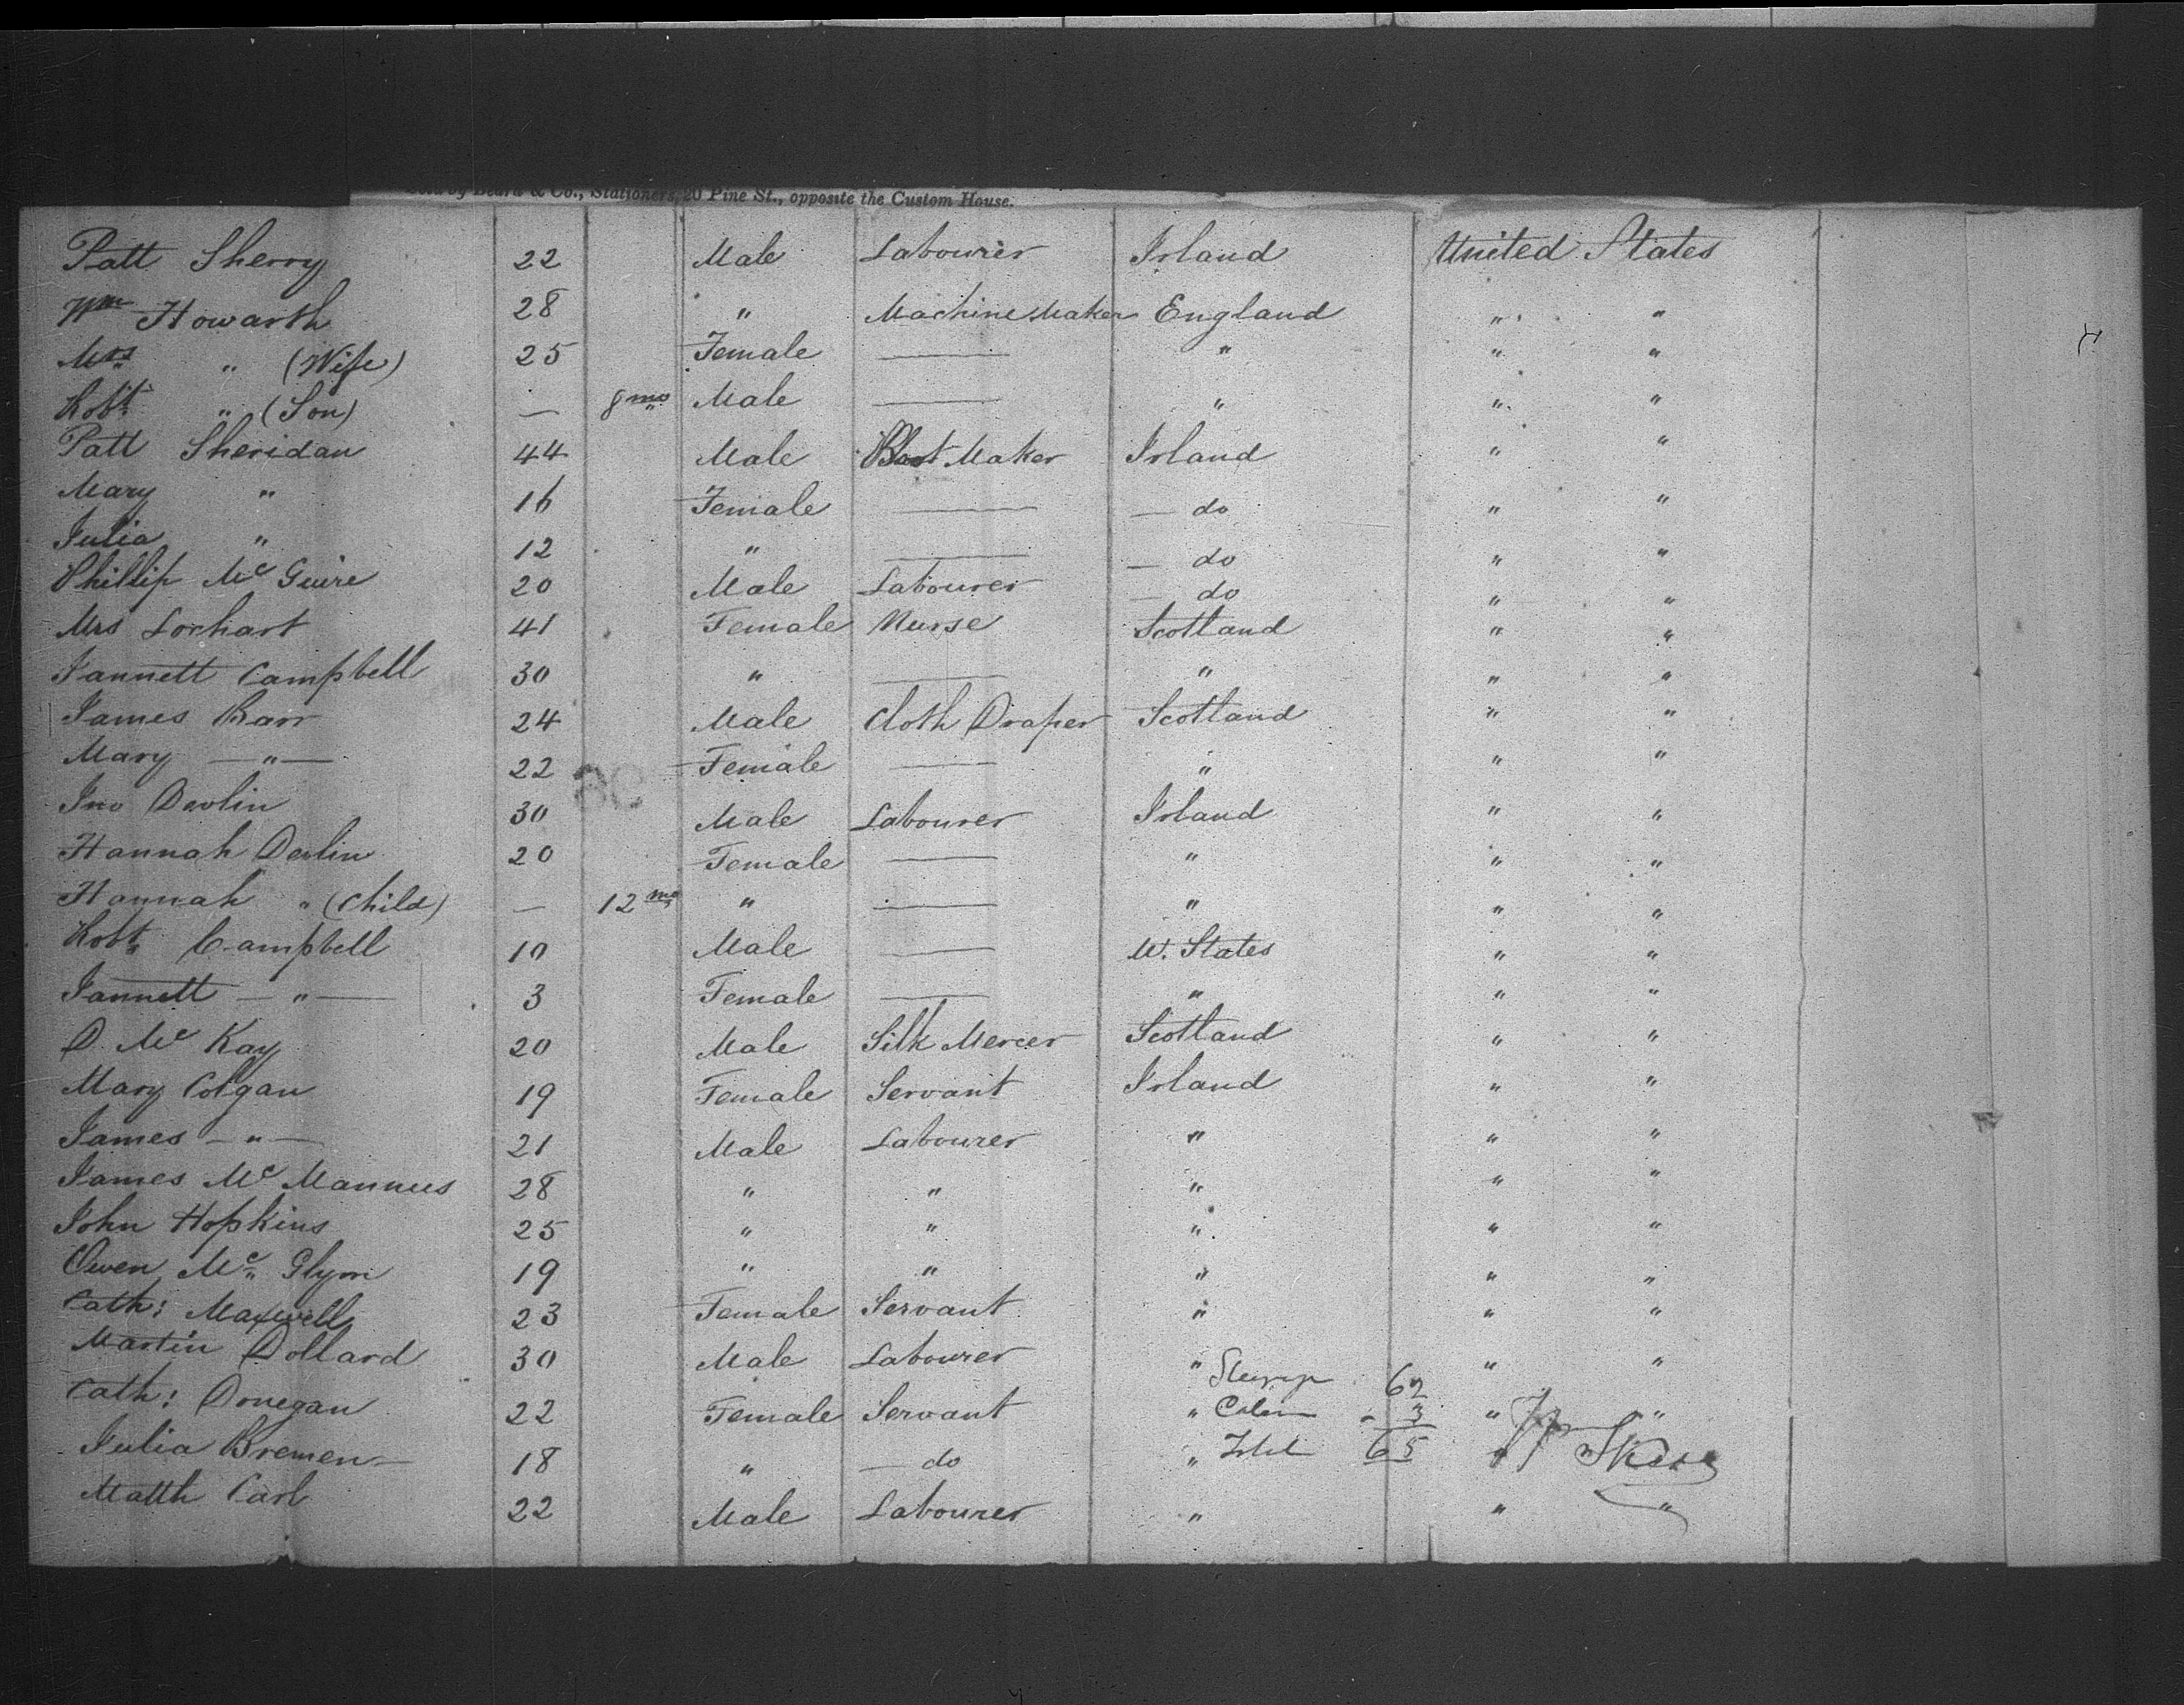 Sold by Beard & Co., Stationers, 20 Pine St., opposite the Custom House.
Patt Sherry 22 Male Labourer Irland United States
Wm Howarth 28 " Machine Maker England " "
Mrs " (Wife) 25 Female — " " "
Robt " (Son) — 8 mo Male — " " "
Patt Sheridan 44 Male Boot Maker Irland " "
Mary " 16 Female — — do " "
Julia " 12 " — — do " "
Phillip Mc Guire 20 Male Labourer — do " "
Mrs Lorhart 41 Female Nurse Scotland " "
Jannett Campbell 30 " — " " "
James Barr 24 Male Cloth Draper Scotland " "
Mary — " — 22 Female — " " "
Jno Devlin 30 Male Labourer Irland " "
Hannah Devlin 20 Female — " " "
Hannah " (Child) — 12 mo " — " " "
Robt Campbell 10 Male — U. States " "
Jannett — " — 3 Female — " " "
D. Mc Kay 20 Male Silk Mercer Scotland " "
Mary Colgan 19 Female Servant Irland " "
James — " — 21 Male Labourer " " "
James Mc Mannus 28 " " " " "
John Hopkins 25 " " " " "
Owen Mc Glynn 19 " " " " "
Cath: Maxwell 23 Female Servant " " "
Martin Dollard 30 Male Labourer " " "
Cath: Donegan 22 Female Servant " " "
Julia Bremen — 18 " — do " "
Matth Carl 22 Male Labourer " " "
62
3
65